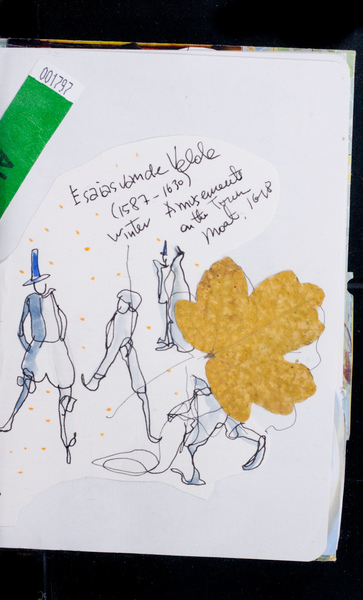 001797
Esaias van de Velde
(1587-1630)
Winter Amusements
on the Town
Moat, 1618